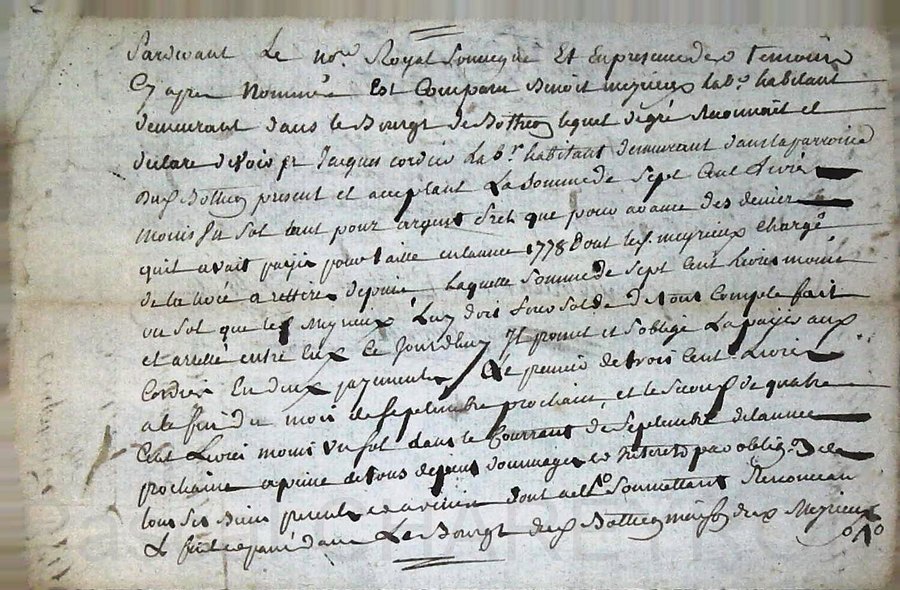 Pardevant Le no.re Royal Soussigné Et En presence des temoins
Cy apres Nommés Est Comparu Benoit meyrieux lab.r habitant
demeurant dans le Bourgt de Botheon lequel de gré Reconnoit et
declare devoir a Jacques cordier Lab.r habitant demeurant dans la parroisse
dud Botheon present et acceptant La Somme de Sept Cent Livres
moins un Sol tant pour argent preté que pour avance des deniers
quil avait payés pour taille en lannee 1778 dont led. meyrieux Chargé
de la levée a retirés depuis laquelle Somme de Sept Cent livres moins
un Sol que led Meyrieux Luy doit pour Solde de tous Compte fait
et arreté entre Eux Ce Jourdhuy Il promet et soblige La payer aux
Cordier En deux payements Le premier de trois Cent Livres
a la fin du mois de septembre prochain, et le Second de quatre
Cent Livres moins un sol dans le Courrant de Septembre de lannee
prochaine a peine de tous depens dommages et Interets par oblig.on de
tous Ses Biens presents et avenir dont acte Soumettant Renonceant
fait et passé dans Le Bourgt dud Botheon maison dud Meyrieux